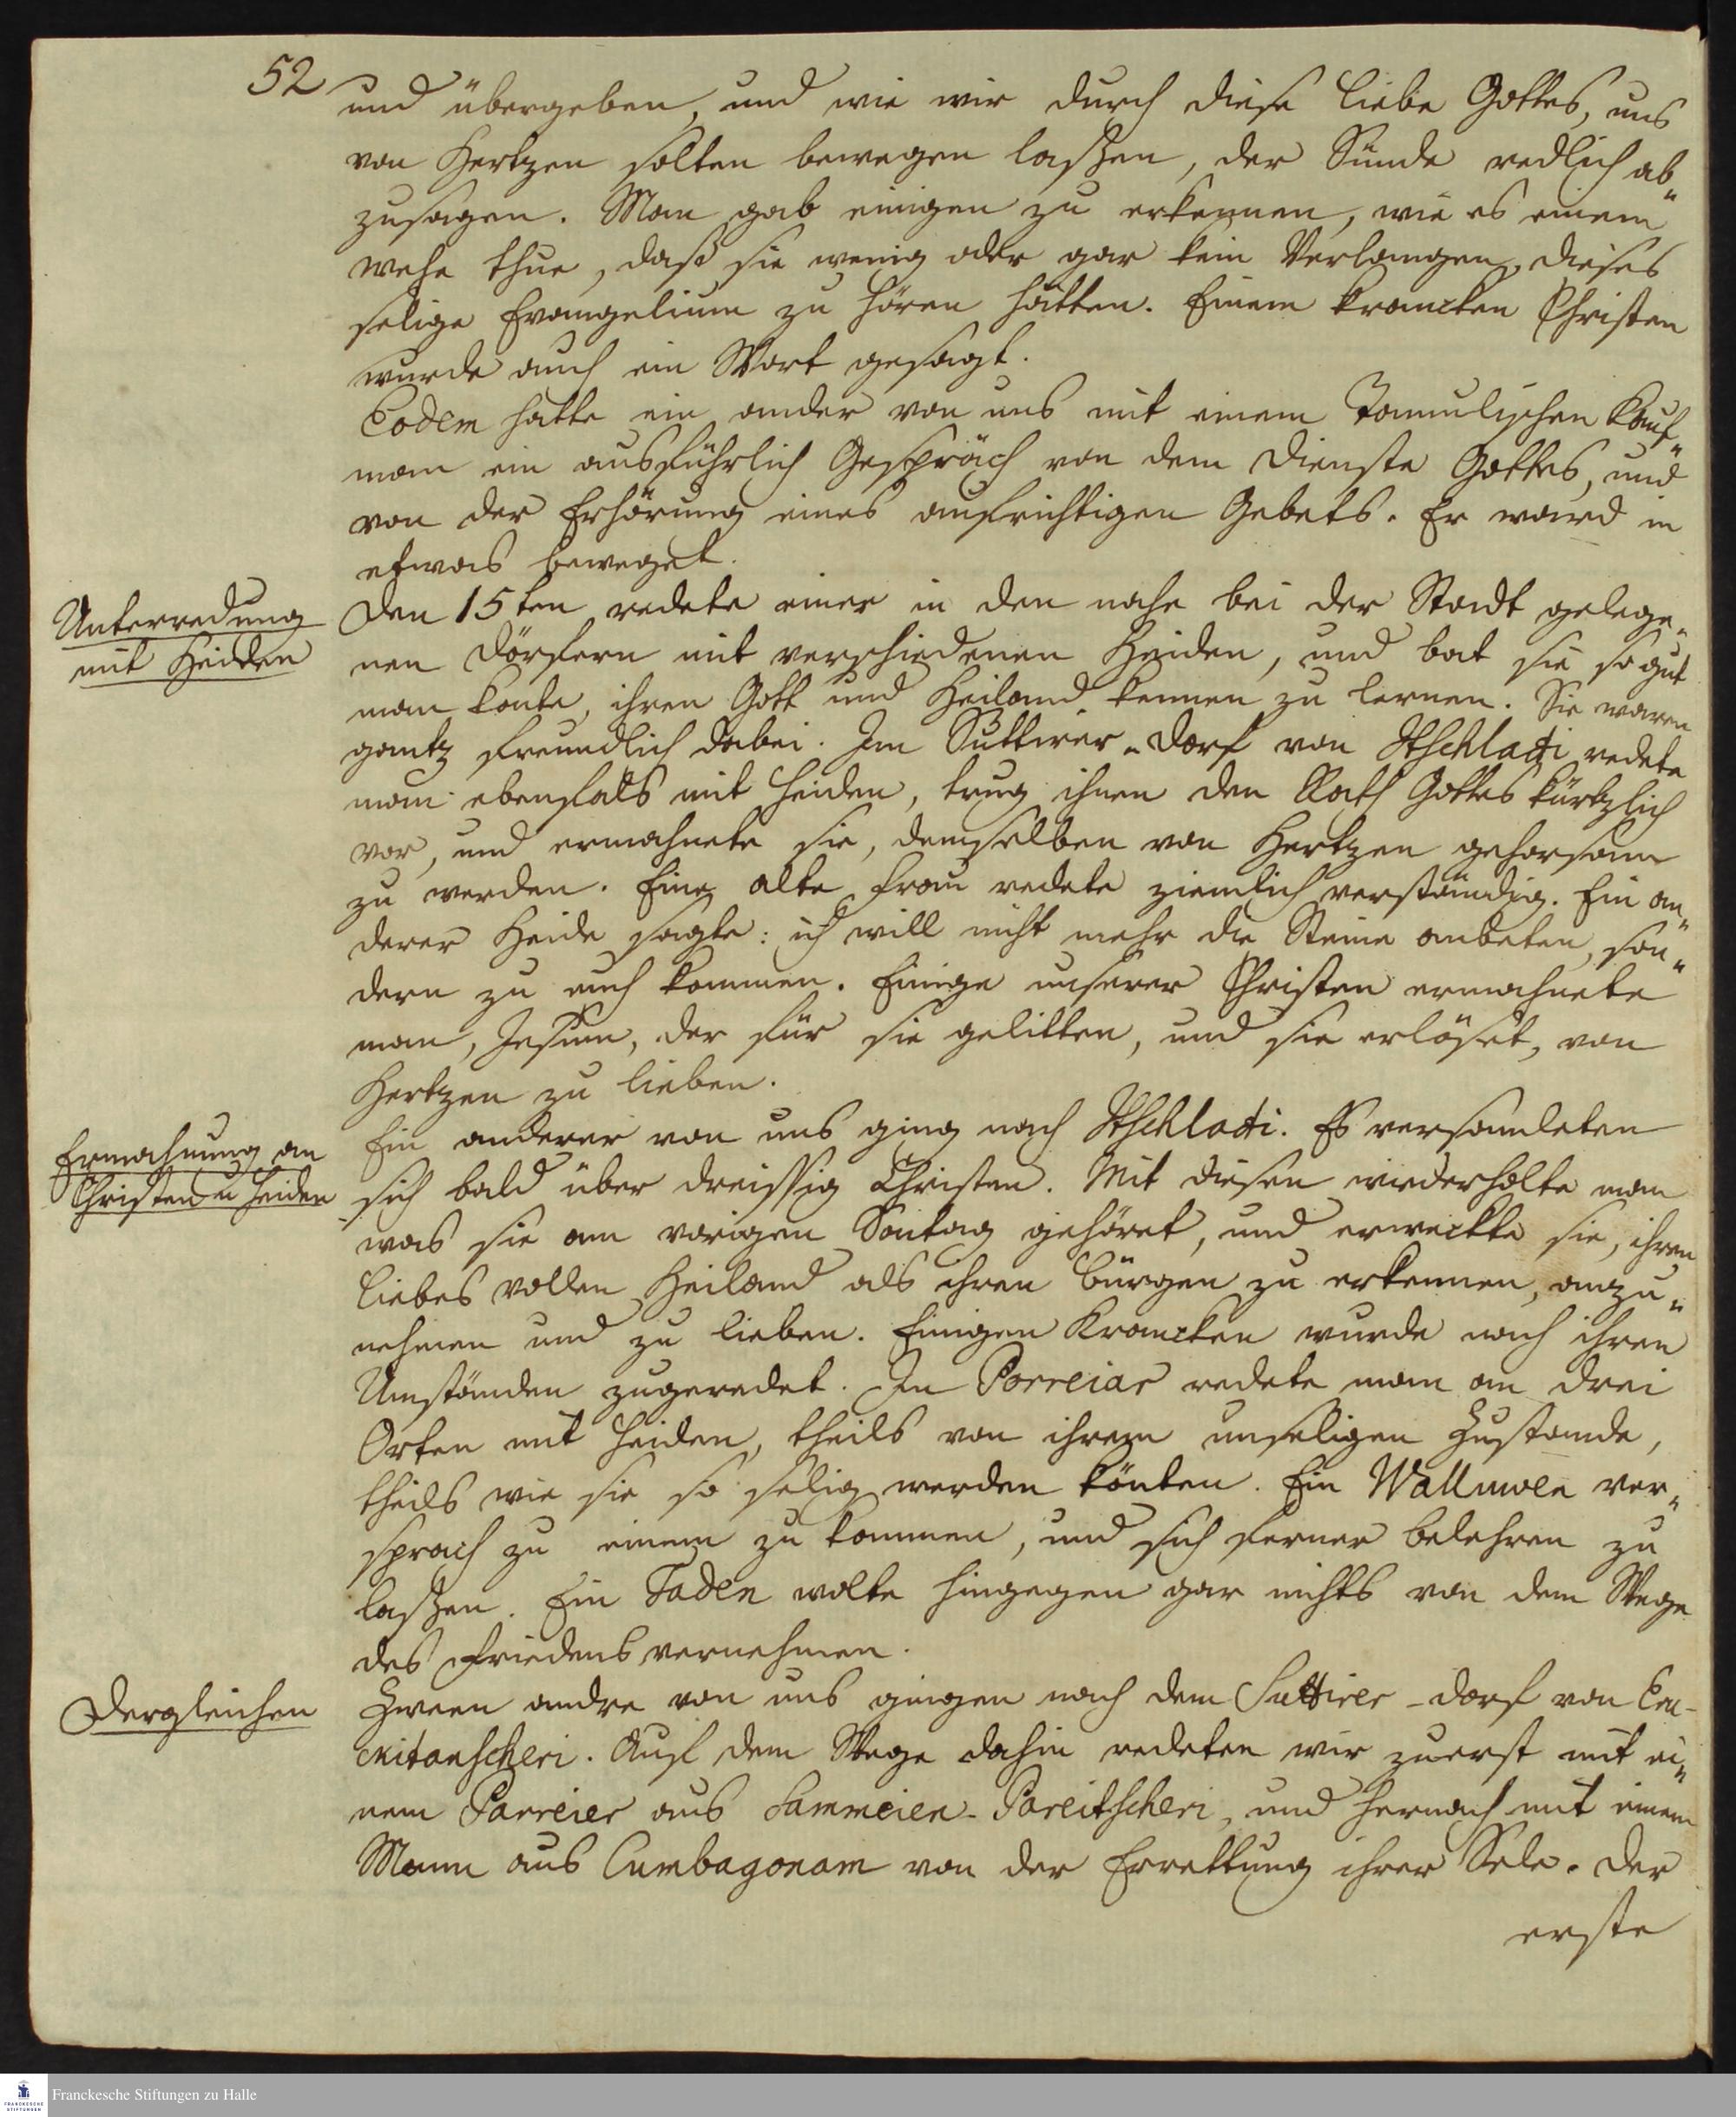 52
und übergeben, und wie wir durch diese Liebe Gottes, uns
von Hertzen solten bewegen laßen, der Sünde redlich ab„
zusagen. Man gab einigen zu erkennen, wie es einem
wehe thue, daß sie wenig oder gar kein Verlangen, dieses
selige Evangelium zu hören hätten. Einem krancken Christen
wurde auch ein Wort gesagt.
Eodem hatte ein ander von uns mit einem Tamulischen Kauf„
man ein ausführlich Gespräch von dem Dienste Gottes, und
von der Erhörung eines aufrichtigen Gebets. Er ward in
etwas beweget.
Unterredung
mit Heiden
Den 15ten redete einer in den nahe bei der Stadt gelege„
nen Dörfern mit verschiedenen Heiden, und bat sie so gut
man konte, ihren Gott und Heiland kennen zu lernen. Sie waren
gantz freundlich dabei. Im Suttirer-Dorf von Itschladi redete
man ebenfals mit Heiden, trug ihnen den Rath Gottes kürtzlich
vor, und ermahnete sie, demselben von Hertzen gehorsam
zu werden. Eine alte Frau redete ziemlich verständig. Ein an„
derer Heide sagte: ich will nicht mehr die Steine anbeten, son„
dern zu euch kommen. Einige unserer Christen ermahnete
man, Jesum, der für sie gelitten, und sie erlöset, von
Hertzen zu lieben.
Ermahnung an
Christen u Heiden
Ein anderer von uns ging nach Itschladi. Es versamleten
sich bald über dreissig Christen. Mit diesen wiederholte man
was sie am vorigen Sontag gehöret, und erweckte sie, ihren
liebes vollen Heiland als ihren Bürgen zu erkennen, anzu„
nehmen und zu lieben. Einigen Krancken wurde nach ihren
Umständen zugeredet. In Porreiar redete man an drei
Orten mit Heiden, theils von ihrem unseligen Zustande,
theils wie sie so selig werden könten. Ein Walluwen ver„
sprach zu einem zu kommen, und sich ferner belehren zu
laßen. Ein Taden wolte hingegen gar nichts von dem Wege
des Friedens vernehmen.
Dergleichen
Zween andre von uns gingen nach dem Suttirer-Dorf von Eru-
ckitanscheri. Auf dem Wege dahin redeten wir zuerst mit ei„
nem Parreier aus Sammeien-Pareitscheri, und hernach mit einem
Mann aus Cumbagonam von der Errettung ihrer Sele. Der
erste
Franckesche Stiftungen zu Halle
FRANCKESCHE
STIFTUNGEN